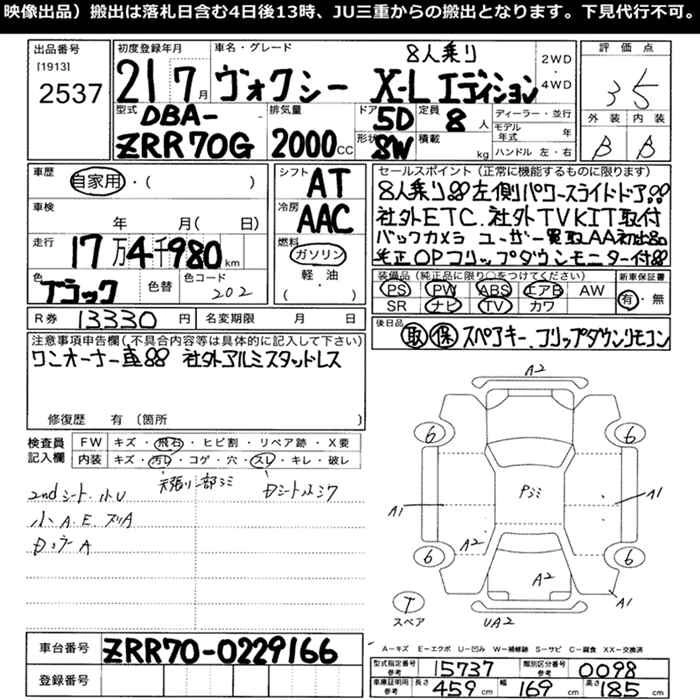 映像出品）搬出は落札日含む4日後13時、JU三重からの搬出となります。下見代行不可。
出品番号
[1913]
2537
初度登録年月
21 7月
車名・グレード
8人乗り
ヴォクシー X-L エディション
2WD
・
4WD
評価点
3.5
外装 内装
B B
型式
DBA-
ZRR70G
排気量
2000cc
ドア
5D
形状
SW
定員
8人
積載
kg
ディーラー・並行
モデル年式 年
ハンドル 左・右
車歴
自家用・( )
車検
年 月( 日)
走行
17万4千980km
色
ブラック
色替
色コード
202
シフト
AT
冷房
AAC
燃料
ガソリン
・
軽・油
( )
セールスポイント（正常に機能するものに限ります）
8人乗り!!左側パワースライドドア!!
社外ETC.社外TVKIT取付
バックカメラ ユーザー買取AA初出品
純正OPフリップダウンモニター付!!
装備品（純正品に限り○をつけてください）
PS PW ABS エアB AW
SR ナビ TV カワ
新車保証書
有・無
R券
13330円
名変期限 月 日
後日品
取 保 スペアキー、フリップダウンリモコン
注意事項申告欄（不具合内容等は具体的に記入して下さい）
ワンオーナー車!! 社外アルミスタッドレス
修復歴 有〔箇所 〕
検査員記入欄
FW キズ・飛石・ヒビ割・リペア跡・X要
内装 キズ・汚れ・コゲ・穴・スレ・キレ・破レ
天張り一部シミ
Dシート小シワ
2ndシート小U
小A.E.スリA
A2
6
6
Pシミ
A1
A1
A2
6
6
A2
T
スペア
UA2
A1
A-キズ E-エクボ U-凹み W-補修跡 S-サビ C-腐食 XX-交換済
車台番号
ZRR70-0229166
登録番号
型式指定番号
参考
15737
類別区分番号
参考
0098
車庫証明用
参考
長さ 459cm 幅 169cm 高さ 185cm